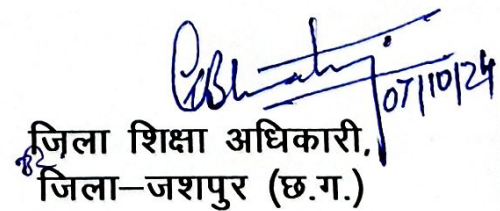 07/10/24
जिला शिक्षा अधिकारी,
जिला–जशपुर (छ.ग.)